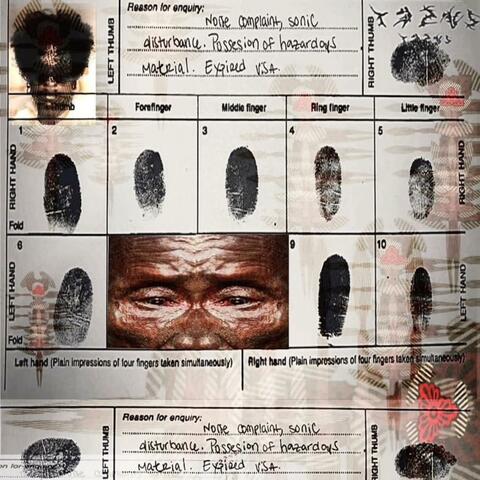 Reason for enquiry:
Noise complaint, sonic
disturbance. Possesion of hazardous
Material. Expired VISA.
LEFT THUMB
RIGHT THUMB
Thumb Forefinger Middle finger Ring finger Little finger
1 2 3 4 5
RIGHT HAND
RIGHT HAND
Fold
6 9 10
LEFT HAND
LEFT HAND
Fold
Left hand (Plain impressions of four fingers taken simultaneously) Right hand (Plain impressions of four fingers taken simultaneously)
Reason for enquiry:
Noise complaint, sonic
disturbance. Possesion of hazardous
Material. Expired VISA.
LEFT THUMB
RIGHT THUMB